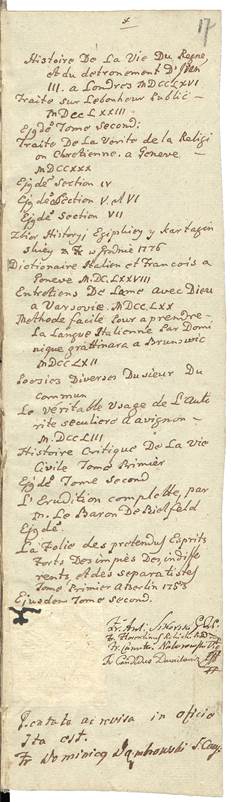 17
Histoire De La Vie Du Regne,
et du detronement D'Iwan
III. a Londres MDCCLXVI
Traité sur Lebonheur Public —
MDCCLXXIII
Ejgdē Tome Second:
Traité De La Verité de la Religi
on Chretienne. a Geneve —
MDCCXXX
Ejgdē Section IV
Ejgdē Section V. et VI
Ejgdē Section VII
Zbior History, Egipskiey y Kartagin
skiey w Grodnie 1776
Dictionaire Italien et François a
Geneve M.DC.LXXVIII
Entretiens De Lame avec Dieu
a Varsovie. MDCCLXX
Methode facile Pour aprendre
La Langue Italienne Par Domi
nique grattinara a Brunswic
MDCCLXII
Poesies Diverses Du sieur Du
commun
Le veritable Usage de L'Auto
rité seculiere a avignon —
M.DCCLIII
Histoire Critique De La Vie
Civile Tome Primier
Ejgdē Tome Second
L'Erudition complette, par
m. Le Baron De Bielfeld
Ejgdē.
La Folie des pretendus Esprits
Forts Des impies des indiffe
rents, et des separatistes
Tome Primier a Berlin 1753
Ejusdem Tome Second.
Fr. Ant. Sikorski
Fr.
Fr.
Fr. Candidus
et revisa in officio
Ita est.
Fr Dominicq Dąmbrowski S.